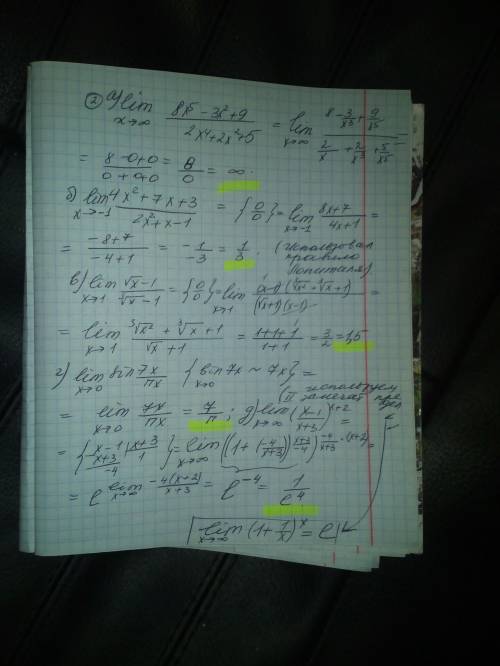 ② а) lim x→∞ (8x⁵ - 3x² + 9)/(2x⁴ + 2x² + 5) = lim x→∞ (8 - 3/x³ + 9/x⁵)/(2/x + 2/x³ + 5/x⁵) =
= (8 - 0 + 0)/(0 + 0 + 0) = 8/0 = ∞.
б) lim x→-1 (4x² + 7x + 3)/(2x² + x - 1) = {0/0} = lim x→-1 (8x + 7)/(4x + 1) =
= (-8 + 7)/(-4 + 1) = -1/-3 = 1/3. (использовал правило Лопиталя)
в) lim x→1 (√x - 1)/(∛x - 1) = {0/0} = lim x→1 (x-1)(∛x² + ∛x + 1)/((√x + 1)(x - 1)) =
= lim x→1 (∛x² + ∛x + 1)/(√x + 1) = (1+1+1)/(1+1) = 3/2 = 1,5
г) lim x→0 sin 7x/πx {sin 7x ~ 7x} x→0 =
= lim x→0 7x/πx = 7/π; д) lim x→∞ ((x-1)/(x+3))^(x+2) =
используем II замечат. предел
= {(x-1)/(x+3) (x+3)/1 -4} = lim x→∞ ((1 + (-4/(x+3)))^((x+3)/-4))^(-4/(x+3) · (x+2)) =
= e^(lim x→∞ -4(x+2)/(x+3)) = e⁻⁴ = 1/e⁴
lim x→∞ (1 + 1/x)ˣ = e